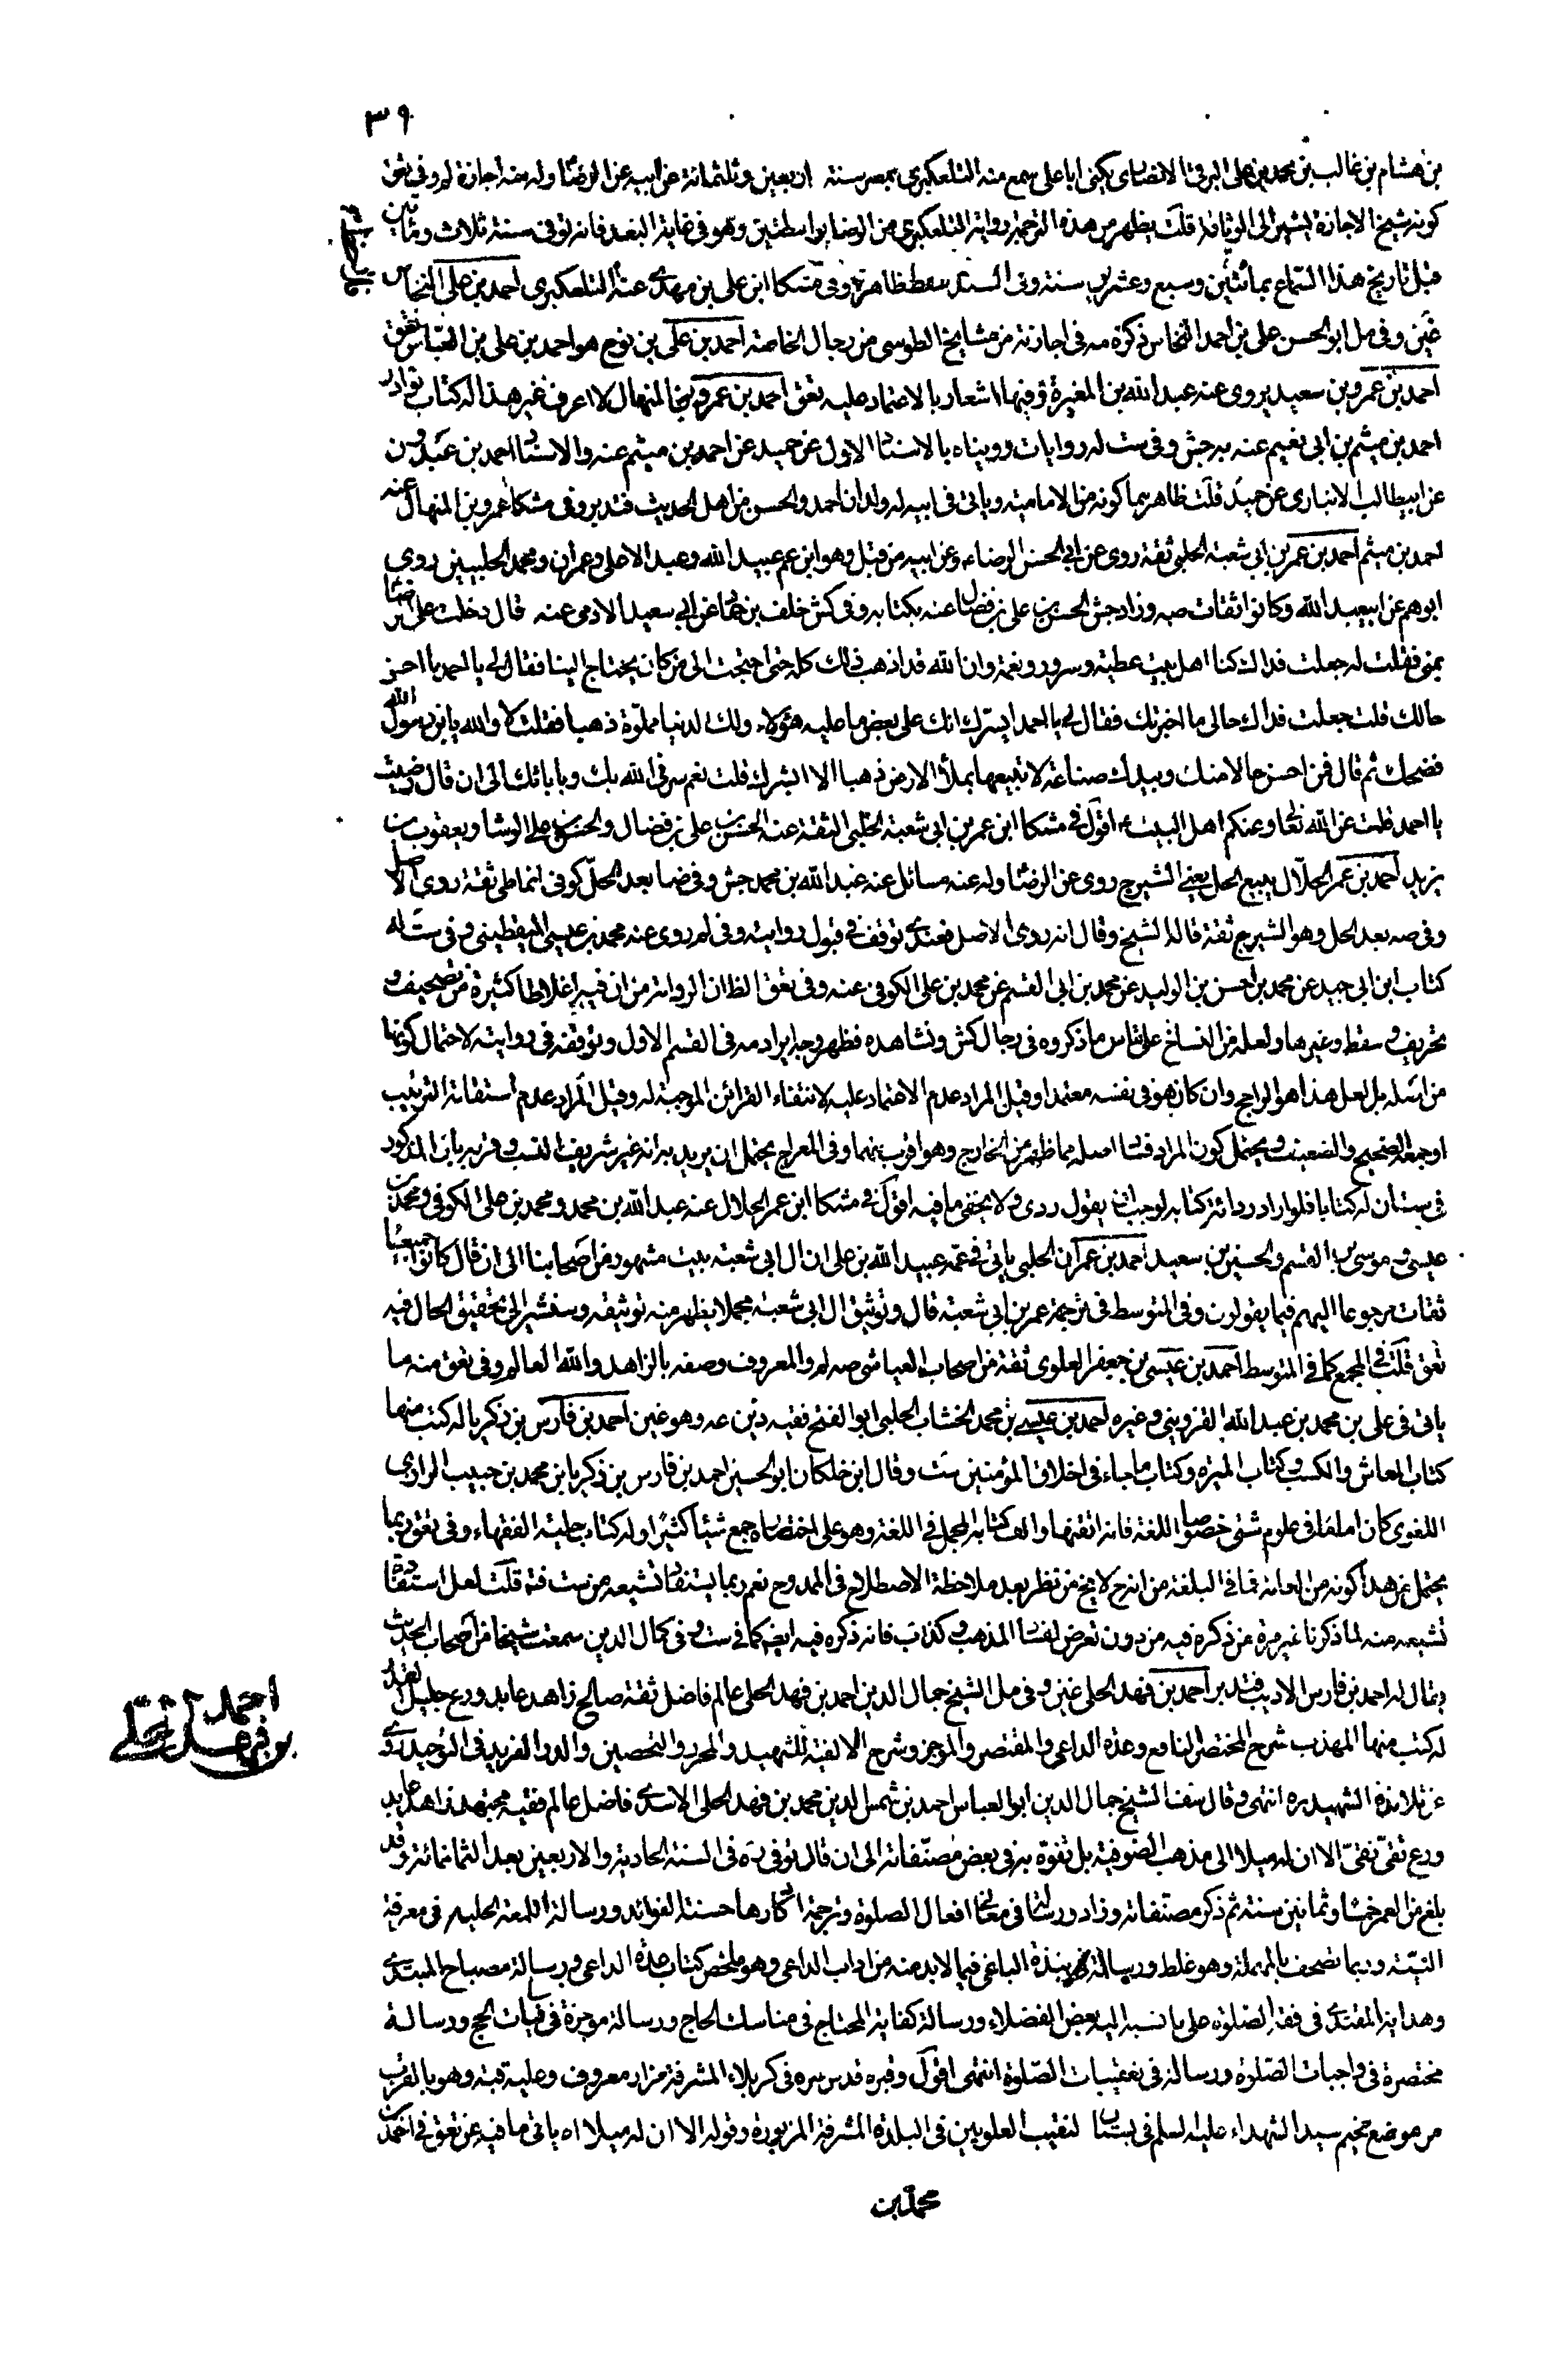 ٣٩
بن هشام بن غالب بن محمد بن على البرقى الانصارى يكنى ابا على سمع منه التلعكبرى بمصر سنة اربعين وثلثمائة عن ابيه عن الرضا وله منه اجازة لم وفى تعق
كونه شيخ الاجازة يشير الى الوثاقة قلت يظهر من هذه الترجمة رواية التلعكبرى عن الرضا بواسطتين وهو فى غاية البعد فانه توفى سنة ثلاث ومأتين
قبل تاريخ هذا السماع بمائتين وسبع وعشرين سنة وفى السند سقط ظاهر وفى مشكا ابن على بن مهدى عنه التلعكبرى احمد بن على النجاشى
غين وفى مل ابو الحسن على بن احمد النجاشى ذكره مه فى اجازته من مشايخ الطوسى من رجال الخاصة احمد بن على بن نوح هو احمد بن على بن العباس تعق
احمد بن عمرو بن سعيد يروى عنه عبد الله بن المغيرة وفيها اشعار بالاعتماد عليه تعق احمد بن عمرو بن المنهال لا اعرف غير هذا له كتاب نوادر
احمد بن ميثم بن ابى نعيم عنه به جش وفى ست له روايات رويناه بالاسناد الاول عن حميد عن احمد بن ميثم عنه والاسناد احمد بن عبدون
عن ابيطالب الانبارى عن حميد قلت ظاهرهما كونه من الامامية وياتى فى ابيه له ولدان احمد والحسن من اهل الحديث فتدبر وفى مشكا عمرو بن المنهال عنه
احمد بن ميثم احمد بن عمر بن ابى شعبة الحلبى ثقة روى عن ابى الحسن الرضاء وعن ابيه من قبل وهو ابن عم عبيد الله وعبد الاعلى وعمران ومحمد الحلبيين روى
ابوهم عن ابيعبد الله وكانوا ثقات صه وزاد جش الحسن بن على بن فضال عنه بكتابه وفى كش خلف بن حماد عن ابى سعيد الادمى عنه قال دخلت على الرضا
بمنى فقلت له جعلت فداك كنا اهل بيت عطية وسرور ونعمة وان الله قد اذهب ذلك كله حتى احتجت الى من كان يحتاج الينا فقال لى يا احمد ما احسن
حالك قلت جعلت فداك حالى ما اخبرتك فقال لى يا احمد ايسرك انك على بعض ما عليه هؤلاء ولك الدنيا مملوة ذهبا فقلت لا والله يا بن رسول الله
فضحك ثم قال فمن احسن حالا منك وبيدك صناعة لا تبيعها بملأ الارض ذهبا الا ابشرك قلت نعم سرنى الله بك وبابائك الى ان قال رضيت
يا احمد قلت عن الله تعالى وعنكم اهل البيت اقول فى مشكا ابن عمر بن ابى شعبة الحلبى الثقة عنه الحسن بن على بن فضال والحسن بن على الوشا ويعقوب بن
يزيد احمد بن عمر الحلال يبيع الحل يعنى الشيرج روى عن الرضا وله عنه مسائل عنه عبد الله بن محمد جش وفى ضا بعد الحل كوفى انماطى ثقة روى الاصل
وفى صه بعد الحل وهو الشيرج ثقة قاله الشيخ وقال انه روى الاصل فعندى توقف فى قبول روايته وفى لم روى عنه محمد بن عيسى اليقطينى وفى ست له
كتاب ابن ابى جيد عن محمد بن الحسن بن الوليد عن محمد بن ابى القسم عن محمد بن على الكوفى عنه وفى تعق الظ ان الردائة من ان فيه اغلاطا كثيرة من تصحيف و
تحريف وسقط وغيرها ولعله من النساخ على قياس ما ذكروه فى رجال كش ونشاهده فظهر وجه ايراد مه فى القسم الاول وتوقفه فى روايته لاحتمال كونها
من اصله بل لعل هذا هو الراجح وان كان هو فى نفسه معتمدا وقيل المراد عدم الاعتماد عليه لانتفاء القرائن الموجبة له وقيل المراد عدم استقامة الترتيب
او جمعه الصحيح والضعيف ويحتمل كون المراد فساد اصله مما ظهر من الخارج وهو اقرب منهما وفى المعراج يحتمل ان يريد به انه غير شريف النسب وقربه بان المذكور
فى ست ان له كتابا فلو اراد ردائة كتابه لوجب ان يقول ردى ولا يخفى ما فيه اقول فى مشكا ابن عمر الحلال عنه عبد الله بن محمد ومحمد بن على الكوفى ومحمد بن
عيسى وموسى بن القسم والحسين بن سعيد احمد بن عمران الحلبى ياتى فى عمه عبيد الله بن على ان ال ابى شعبة بيت مشهور من اصحابنا الى ان قال كانوا جميعا
ثقات مرجوعا اليهم فيما يقولون وفى المتوسط فى ترجمة عمر بن ابى شعبة قال وتوثيق ال ابى شعبة مجملا يظهر منه توثيقه وسنشير الى تحقيق الحال فيه
تعق قلت فى المجمع كما فى المتوسط احمد بن عيسى بن جعفر العلوى ثقة من اصحاب العياشى صه لم والمعروف وصفه بالزاهد والله العالم وفى تعق منه ما
ياتى فى على بن محمد بن عبد الله القزوينى وغيره احمد بن عيسى بن محمد الخشاب الحلبى ابو الفتح فقيه دين عه وهو غين احمد بن فارس بن زكريا له كتب منها
كتاب المعاش والكسب وكتاب الميرة وكتاب ما جاء فى اخلاق المؤمنين ست وقال ابن خلكان ابو الحسين احمد بن فارس بن زكريا بن محمد بن حبيب الرازى
اللغوى كان اماما فى علوم شتى خصوصا اللغة فانه اتقنها والف كتابه المجمل فى اللغة وهو على اختصاره جمع شيئا كثيرا وله كتاب حلية الفقهاء وفى تعق ربما
يحتمل من هذا كونه من العامة فما فى البلغة من انه ح لا يخ من نظر بعد ملاحظة الاصطلاح فى الممدوح نعم ربما يستفاد تشيعه من ست فتد قلت لعل استفادة
تشيعه منه لما ذكرنا غير مرة من ذكره فيه من دون تعرض لفساد المذهب وكذا ب فانه ذكره فيه ايضا كما فى ست وفى كمال الدين سمعت شيخا من اصحاب الحديث
يقال له احمد بن فارس الاديب فتدبر احمد بن فهد الحلى غين وفى مل الشيخ جمال الدين احمد بن فهد الحلى عالم فاضل ثقة صالح زاهد عابد ورع جليل القدر
له كتب منها المهذب شرح المختصر النافع وعدة الداعى والمقتصر والموجز وشرح الالفية للشهيد والمحرر والتحصين والدر الفريد فى التوحيد روى
عن تلامذة الشهيد ره انتهى وقال شيخنا الشيخ جمال الدين ابو العباس احمد بن شمس الدين محمد بن فهد الحلى الاسدى فاضل عالم فقيه مجتهد زاهد عابد
ورع تقى نقى الا ان له ميلا الى مذهب الصوفية بل تفوه به فى بعض مصنفاته الى ان قال توفى ره فى السنة الحادية والاربعين بعد الثمانمائة وقد
بلغ من العمر خمسا وثمانين سنة ثم ذكر مصنفاته وزاد ورسالة فى معانى افعال الصلوة وترجمة اذكارها حسنة الفوائد ورسالة اللمعة الجلية فى معرفة
النية وربما تصحف بالمهملة وهو غلط ورسالة نبذة الباغى فيما لا بد منه من اداب الداعى وهو ملخص كتاب عدة الداعى ورسالة مصباح المبتدى
وهداية المقتدى فى فقه الصلوة على ما نسبه اليه بعض الفضلاء ورسالة كفاية المحتاج فى مناسك الحاج ورسالة موجزة فى نيات الحج ورسالة
مختصرة فى واجبات الصلوة ورسالة فى تعقيبات الصلوة انتهى اقول وقبره قدس سره فى كربلاء المشرفة مزار معروف وعليه قبة وهو بالقرب
من موضع مخيم سيد الشهداء عليه السلم فى بستان لنقيب العلويين فى البلدة المشرفة المزبورة وقوله الا ان له ميلا اه ياتى ما فيه عن تعق فى احمد بن
محمد بن
احمد بن فهد حلى